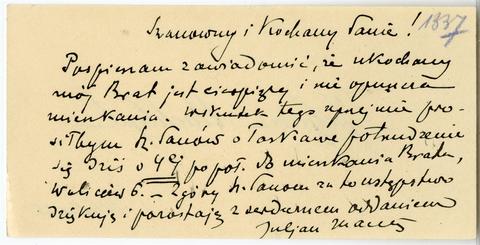 Szanowny i Kochany Panie! 1337
Pospieszam zawiadomić, że ukochany
mój Brat jest cierpiący i nie opuszcza
mieszkania. Wskutek tego uprejmie pro-
siłbym Sz. Panów o łaskawe potrudzenie
się dziś o 4ej po poł. do mieszkania Brata,
Waliców 6. – Zgóry Sz. Panom za to ustępstwo
dziękuję i pozostaję z serdecznem oddaniem
Juljan